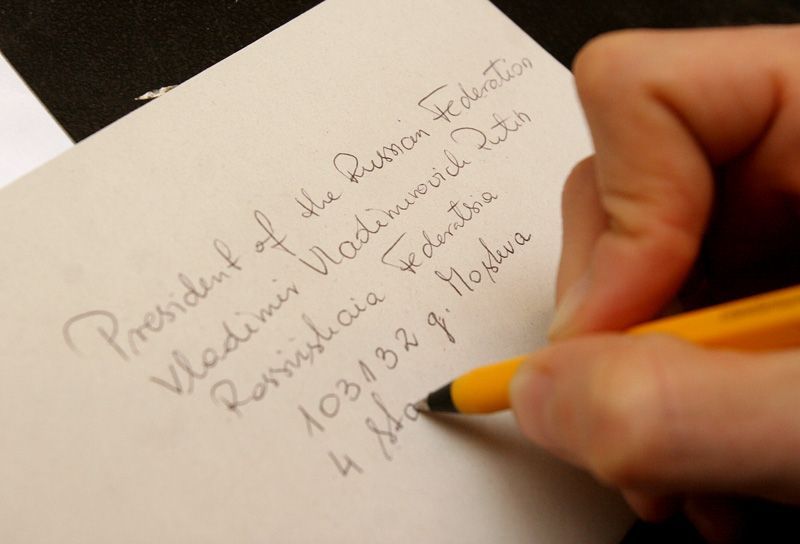 President of the Russian Federation
Vladimir Vladimirovich Putin
Rossiiskaia Federatsia
103132 g. Moskva
4 Sta